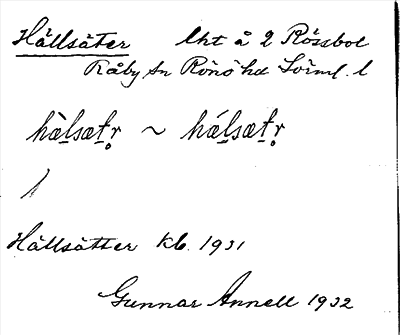 Hällsäter lht å 2 Rössbol
Råby sn Rönö hd Sörml. l
hà̀lsæt̠r̥ ~ hálsæt̠r̥
/
Hällsätter kb. 1931
Gunnar Annell 1932